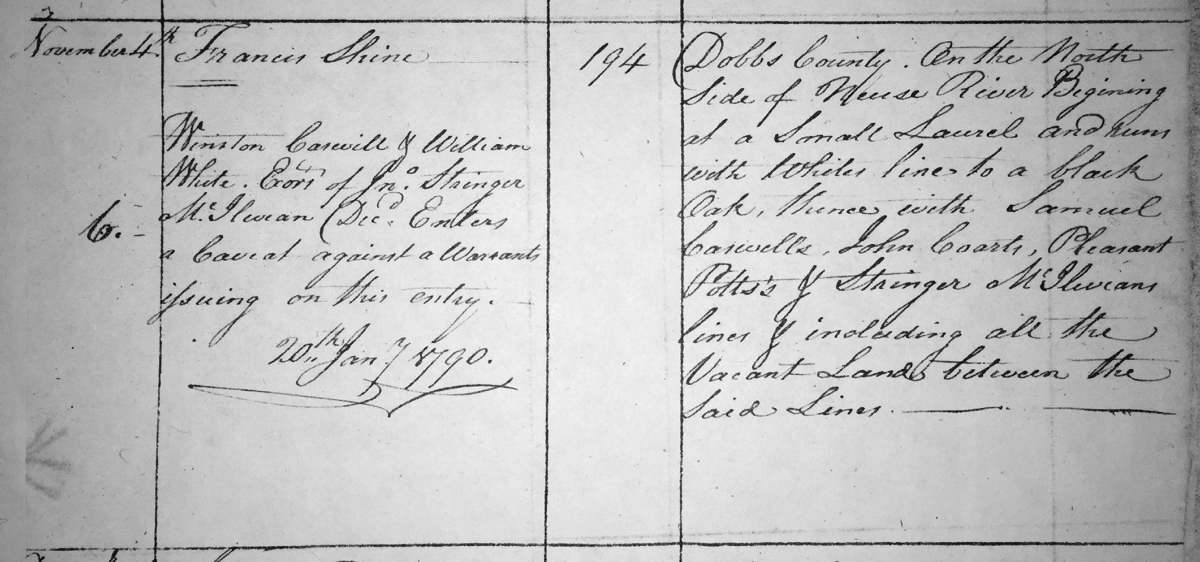 November 4th
Francis Shine
194
Dobbs County. On the North
Side of Neuse River Bigining
at a Small Laurel and runs
with Whites line to a black
Oak, thence with Samuel
Caswells, John Coarts, Pleasant
Potts's & Stringer McIlweans
lines & including all the
Vacant Land between the
Said Lines.
Winston Caswell & William
White. Exors of Jno. Stringer
McIlwean Decd. Enters
a Caveat against a Warrants
issuing on this entry.
20th Jany 1790.
6.